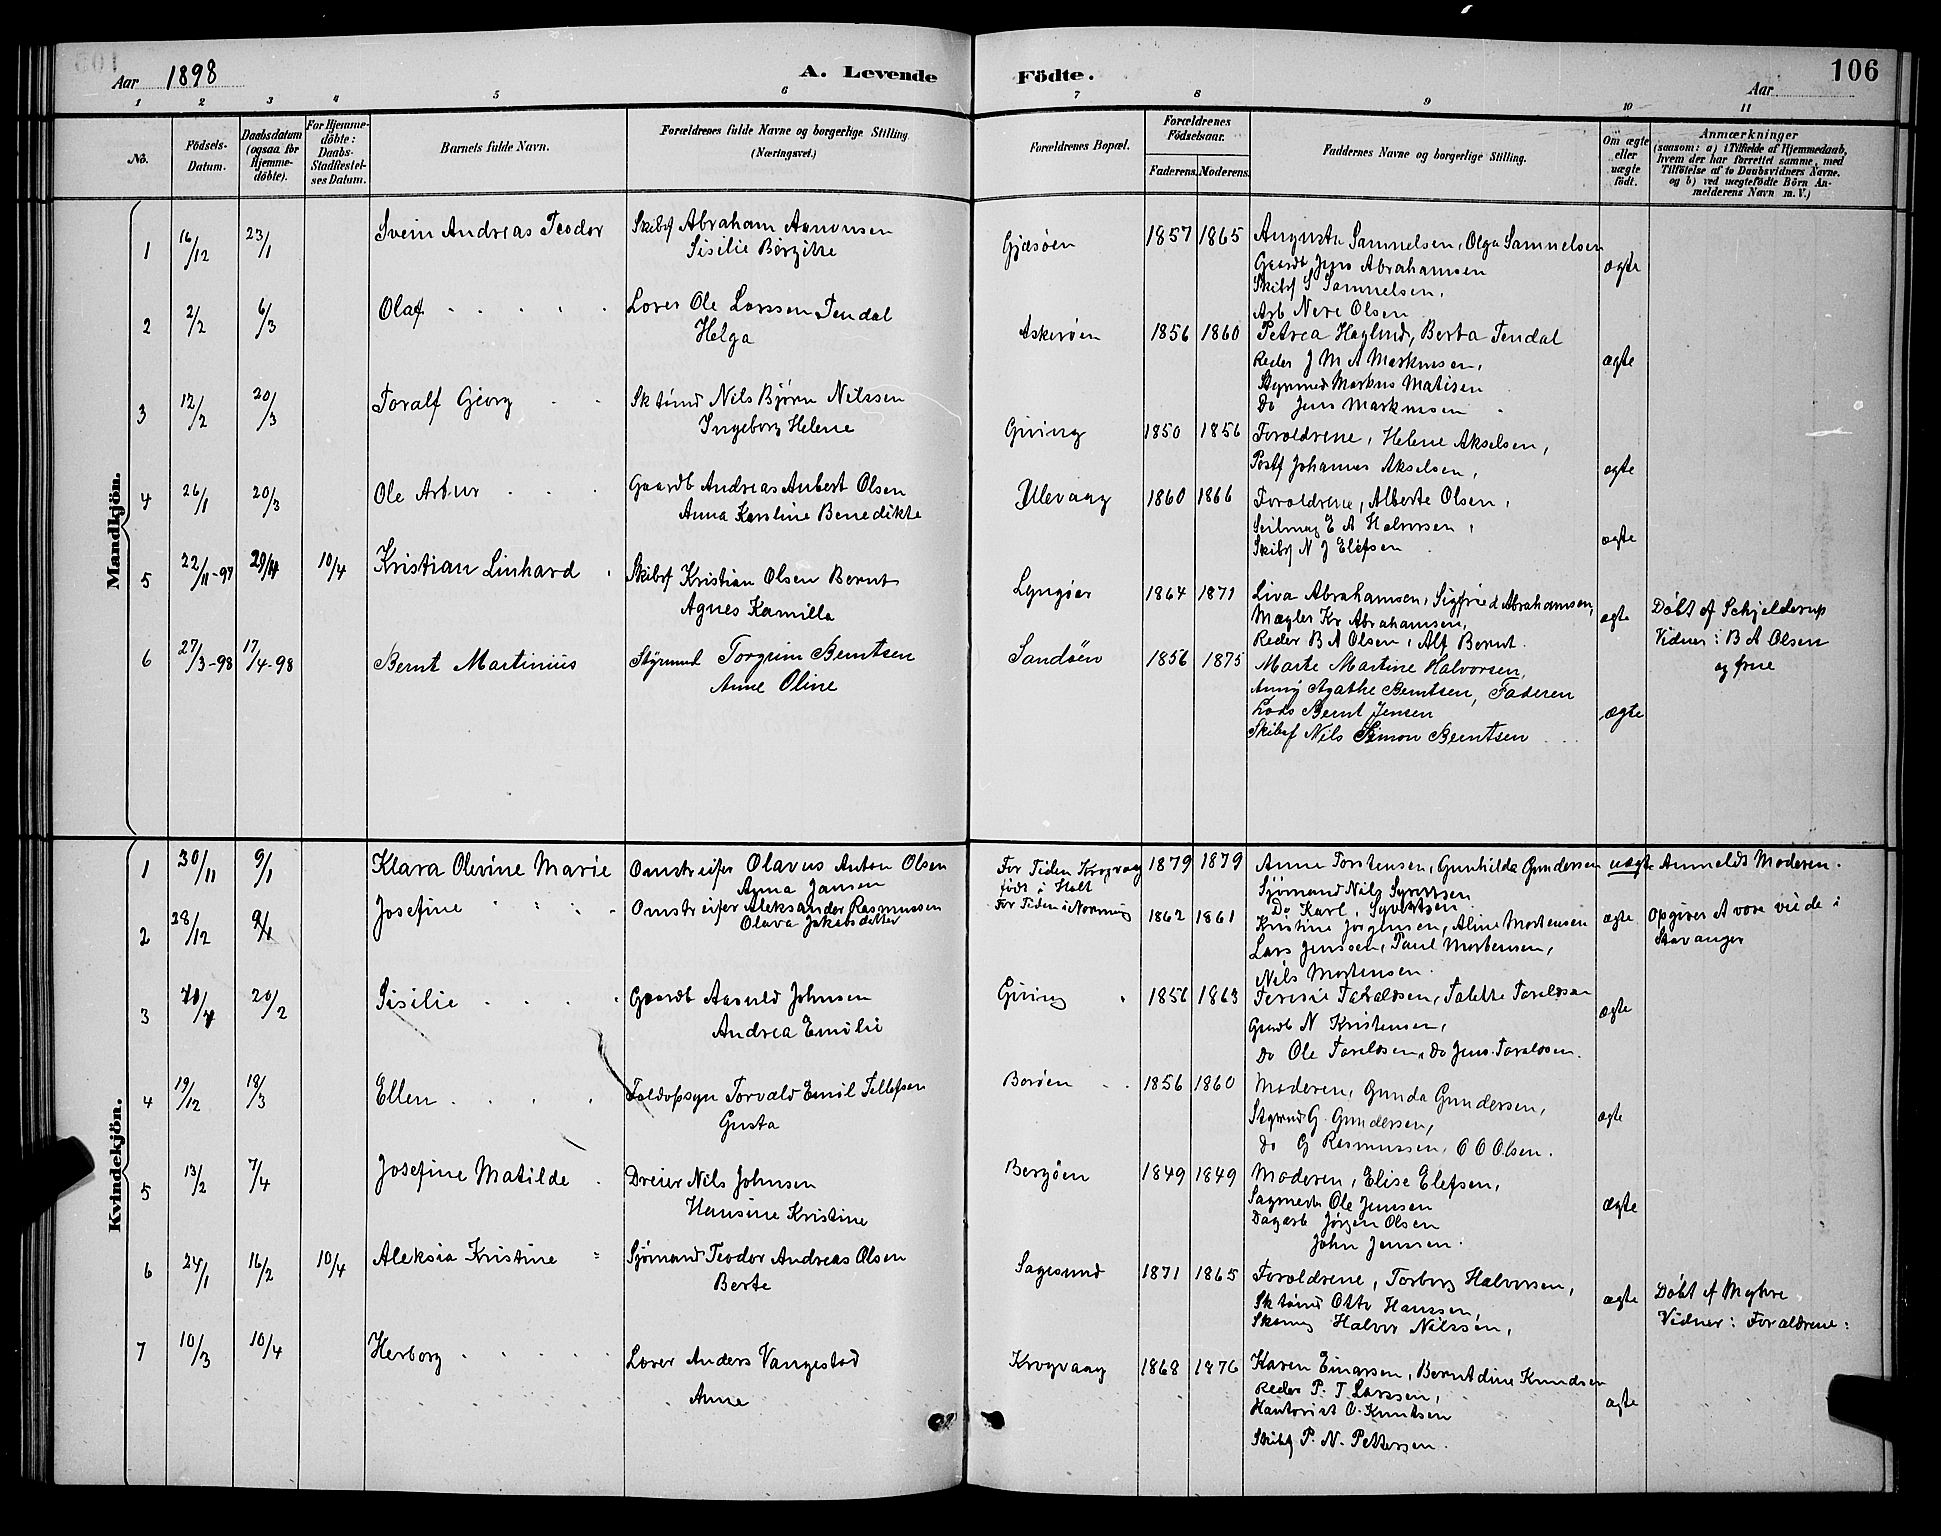 Aar 1898
A. Levende Födte.
Aar
106
1 2 3 4 5 6 7 8 9 10 11
No.
Födsels-Datum.
Daabsdatum (ogsaa for Hjemme-döbte).
For Hjemme-döbte: Daabs-Stadfæstel-ses Datum.
Barnets fulde Navn.
Forældrenes fulde Navne og borgerlige Stilling (Næringsvei.)
Forældrenes Bopæl.
Forældrenes Födselsaar.
Faderens. Moderens.
Faddernes Navne og borgerlige Stilling.
Om ægte eller uægte födt.
Anmærkninger
(saasom: a) i Tilfælde af Hjemmedaab,
hvem der har forrettet samme, med
Tilföielse af to Daabsvidners Navne.
og b) ved uægtefödte Börn An-
melderens Navn m. V.)
Mandkjön.
1 16/12 23/1 Svein Andreas Teodor
Skibsf Abraham Asmonsen
Sisilie Børgitte
Gjæsøen 1857 1865
Augusta Samuelsen, Olga Samuelsen
Gaardb Jens Abrahamsen
Skibsf S Samuelsen,
Arb Nere Olsen
ægte
2 2/2 6/3 Olaf
Lærer Ole Larssen Tendal
Helga
Askerøen 1856 1860
Petrea Haglund, Berta Tendal
Reder J M A Markussen,
Styrmed Markus Matisen
Do Jens Markussen
ægte
3 12/2 20/3 Toralf Georg
Sktømd Nils Bjørn Nilssen
Ingeborg Helene
Giving 1850 1856
Forældrene, Helene Akselsen,
Postf Johannes Akselsen,
ægte
4 26/1 20/3 Ole Artur
Gaardb Andreas Anbert Olsen
Anna Karoline Benedikte
Ulevaag 1860 1866
Forældrene, Alberte Olsen,
Seilmag E A Halvorsen,
Skibsf N J Elefsen
ægte
5 22/11-97 29/11 10/4 Kristian Linhard
Skibsf Kristian Olsen Bernt
Agnes Kamilla
Lyngøer 1864 1871
Liva Abrahamsen, Sigfried Abrahamsen,
Mægler Kr Abrahamsen,
Reder B A Olsen, Alf Bernt.
ægte
Døbt af Schjelderup
Vidner: B A Olsen
og frue
6 27/3-98 17/4-98 Bernt Martinius
Styrmnd Torgrim Berntsen
Anne Oline
Sandøen 1856 1875
Marte Martine Halvorsen,
Anny Agathe Berntsen, Faderen
Lods Bernt Jensen
Skibsf Nils Simon Berntsen
ægte
Kvindekjön.
1 30/11 9/1 Klara Olevine Marie
Omstreifer Olavus Anton Olsen
Anna Jansen
For Tiden Krogvaag
født i Holt
1879 1879
Anne Torstensen, Gunhilda Gundersen
Sjømand Nils Syvertsen
Do Karl, Syvertsen
uægte
Anmeldt Moderen.
2 28/12 9/1 Josefine
Omstreifer Aleksander Rasmussen
Olava Jakobsdatter
For Tiden i Narrvig 1862 1861
Kristine Jørgensen, Aline Mortensen
Lars Jenssen, Paul Mortensen,
Nils Mortensen.
ægte
Opgiver at være viede i
Stavanger
3 20/2 Sisilie
Gaardb Aasuld Johnsen
Andrea Emilie
Giving 1856 1863
Teresie Taraldsen, Talette Taraldsen
Gaardb N Kristensen,
Do Ole Taraldsen, Do Jens Taraldsen.
ægte
4 19/12 18/3 Ellen
Toldopsyn Torvald Emil Tellefsen
Gusta
Borøen 1856 1860
Moderen, Gunda Gundersen,
Styrmd G. Gundersen,
Do G Rasmussen, O O Olsen.
ægte
5 13/2 7/4 Josefine Matilde
Dreier Nils Johnsen
Hansine Kristine
Bergøen 1849 1849
Moderen, Elise Elefsen,
Sagmester Ole Jensen
Dagarb Jørgen Olsen
John Jenssen.
ægte
6 24/1 16/2 10/4 Aleksia Kristine
Sjømand Teodor Andreas Olsen
Berte
Sagesund 1871 1865
Forældrene, Torborg Halvorsen,
Sktømd Otto Hanssen,
Skomag Halvor Nilssøn,
ægte
Døbt af Myhre
Vidner: Forældrene:
7 10/3 10/4 Herborg
Lærer Anders Vangestad
Anne
Krogvaag 1868 1876
Karen Einarsen, Berntdine Knudsen
Reder P. T. Larssen,
Kantorist O. Knutsen
Skibsf P. N. Pettersen.
ægte